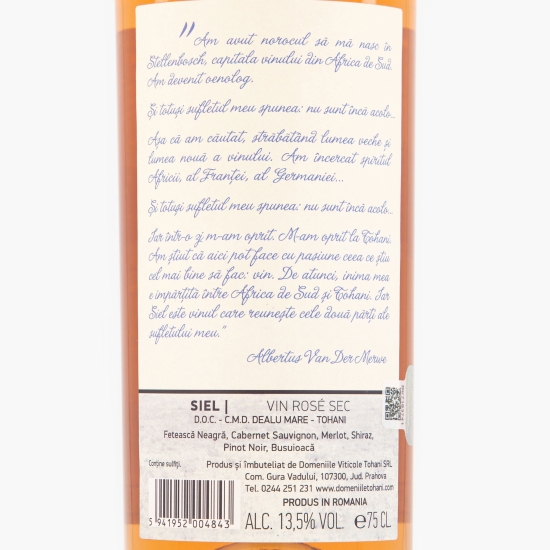 "Am avut norocul să mă nasc în
Stellenbosch, capitala vinului din Africa de Sud.
Am devenit oenolog.
Și totuși sufletul meu spunea: nu sunt încă acolo...
Așa că am căutat, străbătând lumea veche și
lumea nouă a vinului. Am încercat spiritul
Africii, al Franței, al Germaniei...
Și totuși sufletul meu spunea: nu sunt încă acolo...
Iar într-o zi m-am oprit. M-am oprit la Tohani.
Am știut că aici pot face cu pasiune ceea ce știu
cel mai bine să fac: vin. De atunci, inima mea
e împărțită între Africa de Sud și Tohani. Iar
Siel este vinul care reunește cele două părți ale
sufletului meu."
Albertus Van Der Merwe
SIEL | VIN ROSÉ SEC
D.O.C. - C.M.D. DEALU MARE - TOHANI
Fetească Neagră, Cabernet Sauvignon, Merlot, Shiraz,
Pinot Noir, Busuioacă
Conține sulfiți. Produs și îmbuteliat de Domeniile Viticole Tohani SRL
Com. Gura Vadului, 107300, Jud. Prahova
Tel. 0244 251 231 www.domeniiletohani.com
PRODUS IN ROMANIA
5 941952 004843 ALC. 13,5% VOL. ℮75 CL